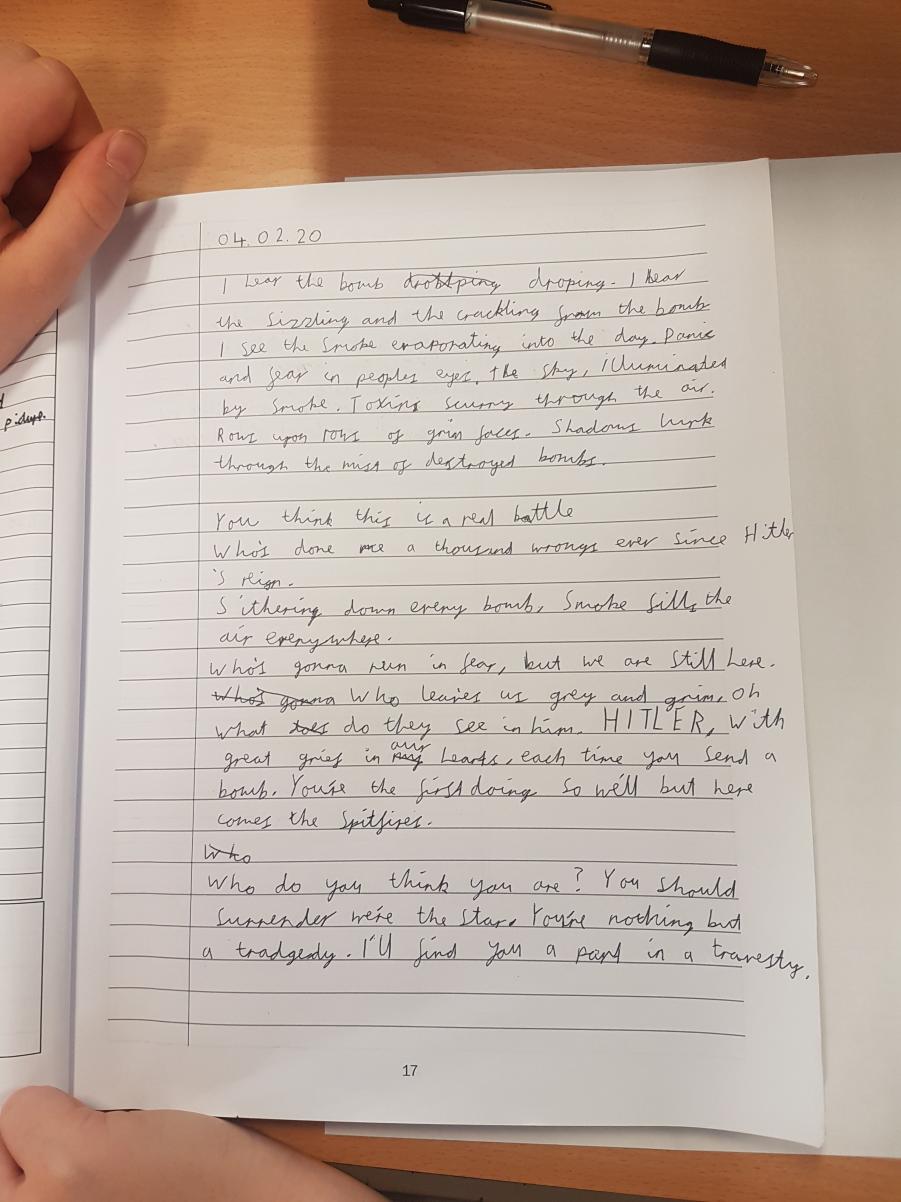 04.02.20
I hear the bomb droping. I hear
the sizzling and the crackling from the bomb
I see the smoke evaporating into the day. Panic
and fear in peoples eyes. the sky, illuminated
by smoke. Toxins scurry through the air.
Rows upon rows of grim faces. Shadows lurk
through the mist of destroyed bombs.
You think this is a real battle
Who's done me a thousand wrongs ever since Hitler
's reign.
Sithering down every bomb, Smoke fills the
air everywhere.
Who's gonna run in fear, but we are still here.
Who's gonna Who leaves us grey and grim, Oh
what does do they see in him. HITLER, with
great grief in our hearts, each time you send a
bomb. You're the first doing so we'll but here
comes the spitfires.
Who
Who do you think you are? You should
surrender we're the star. You're nothing but
a tradgedy. I'll find you a part in a travesty.
pidys.
17